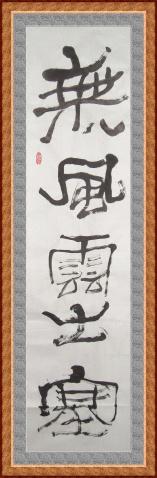 無風雲出塞